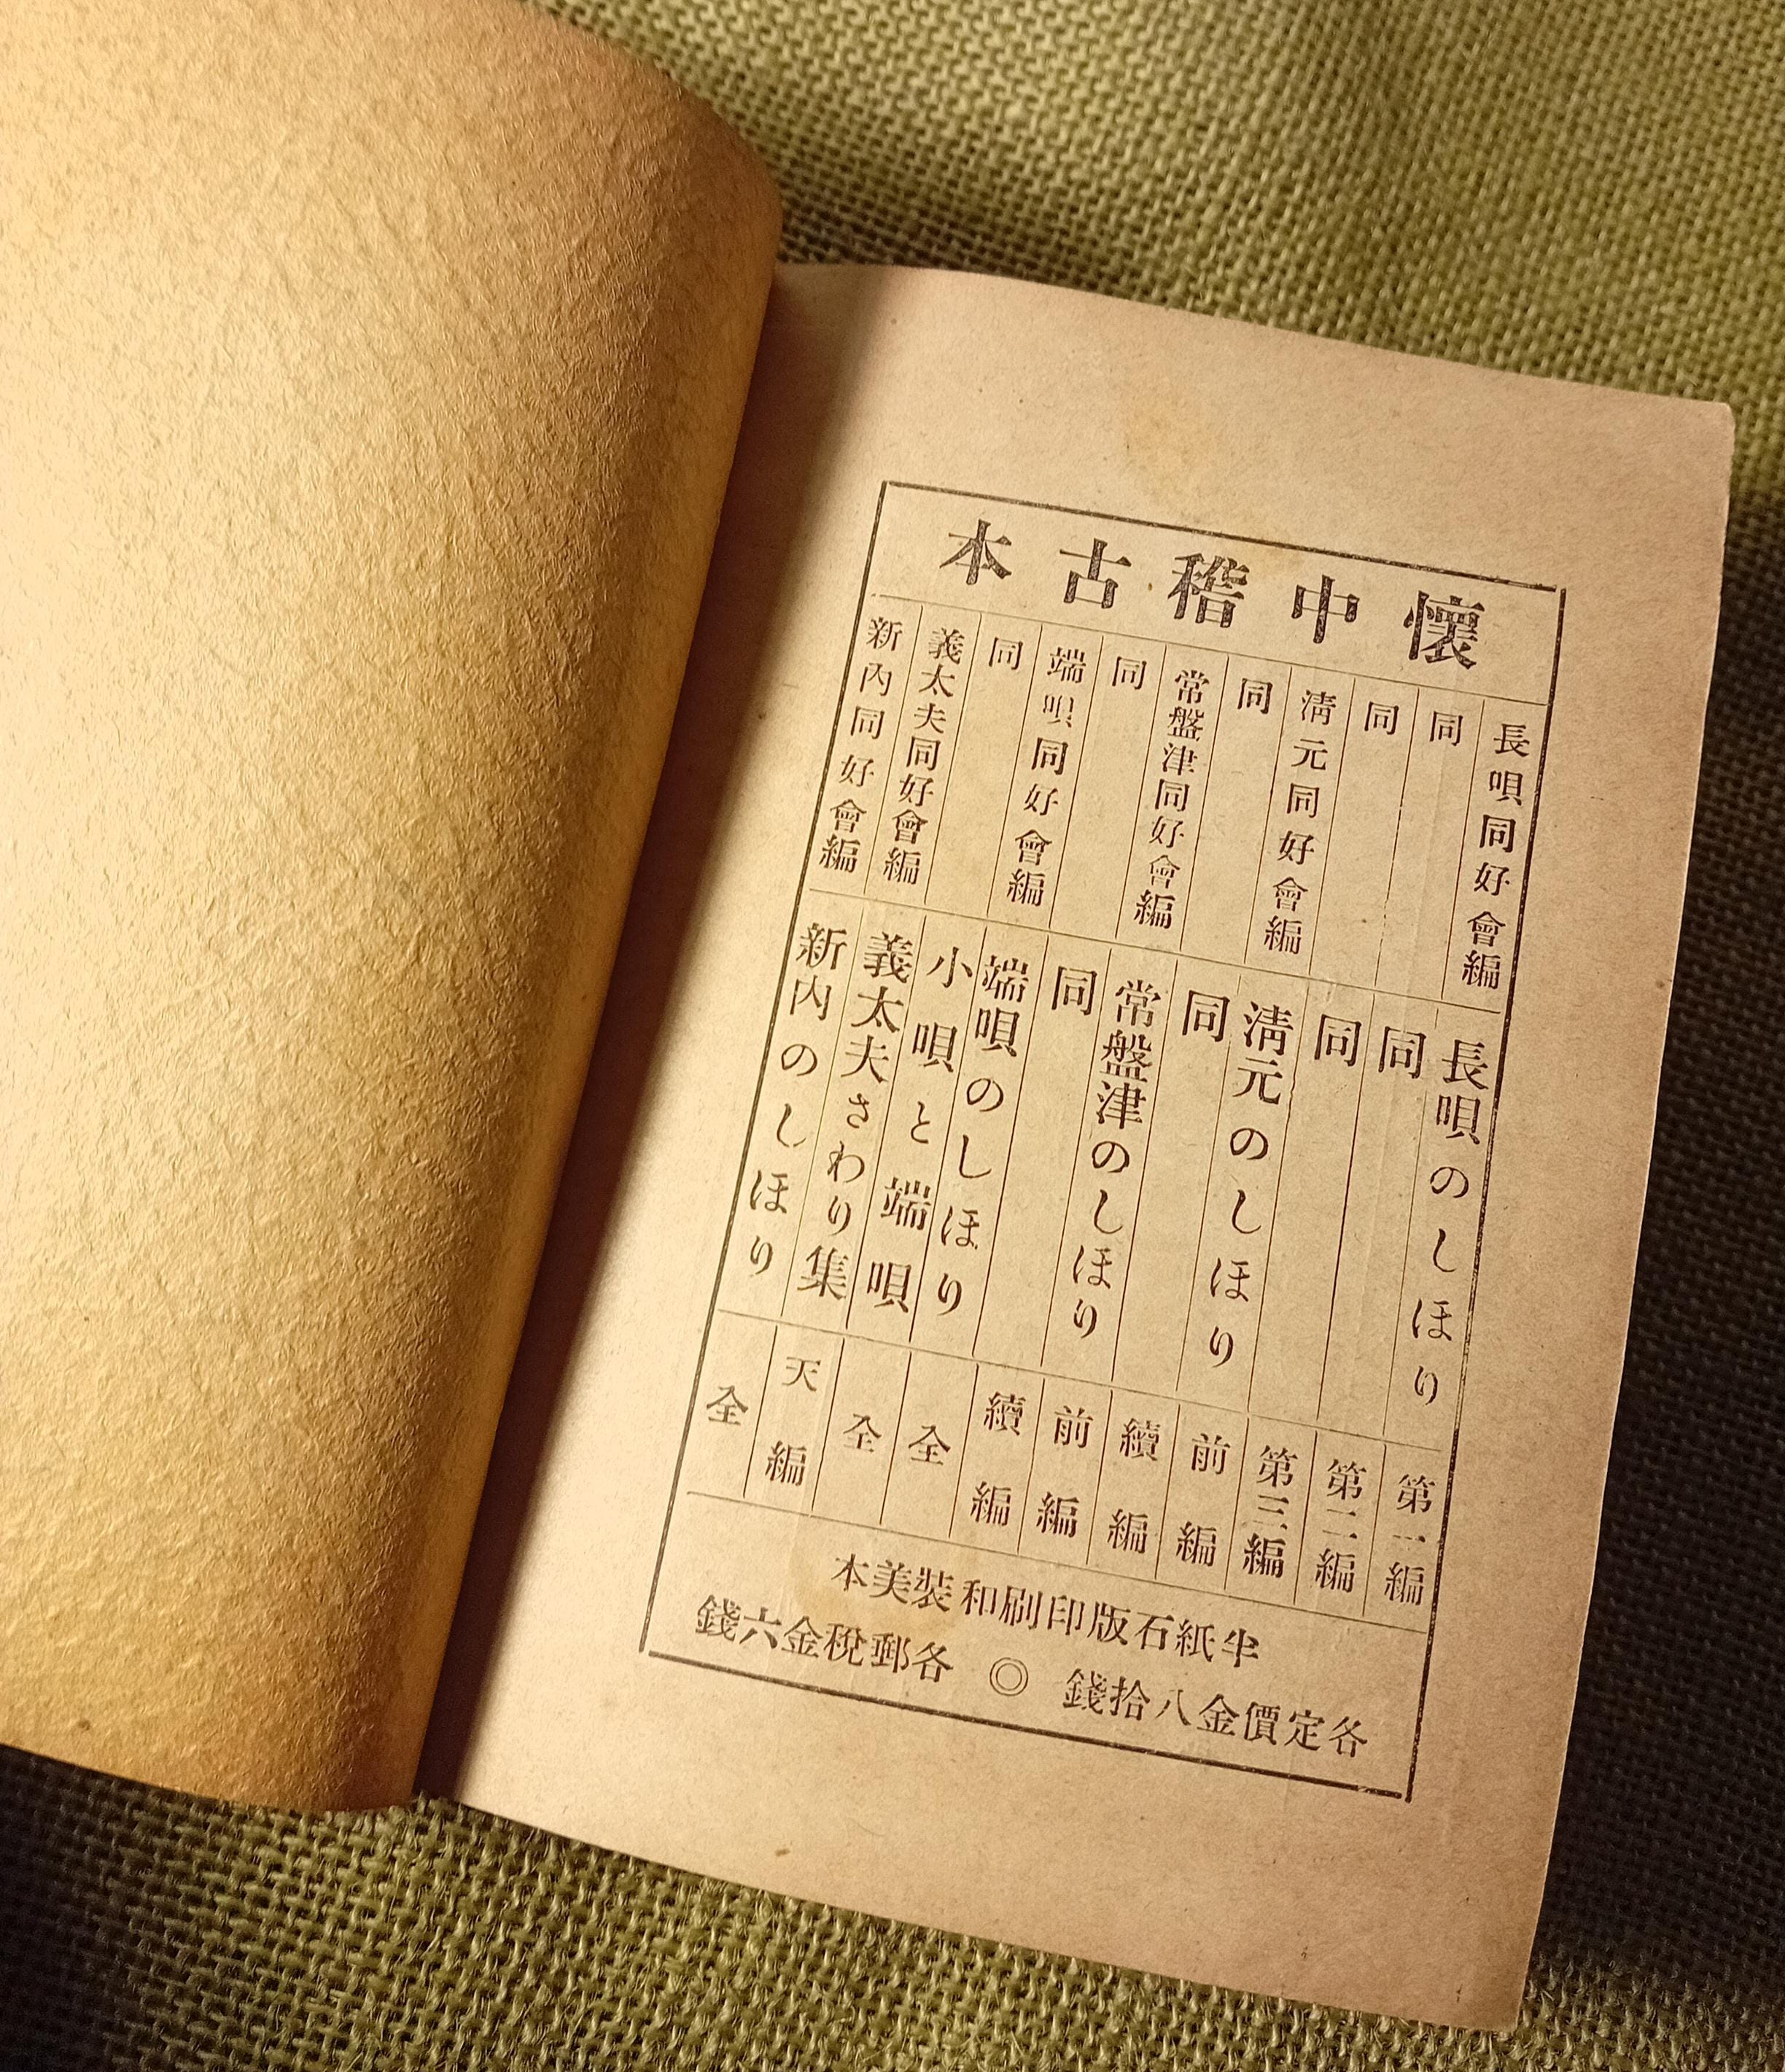 懷中稽古本
長唄同好會編 長唄のしほり 第一編
同 同 第二編
同 同 第三編
淸元同好會編 淸元のしほり 前編
同 同 續編
常盤津同好會編 常盤津のしほり 前編
同 同 續編
端唄同好會編 端唄のしほり 全
同 小唄と端唄 全
義太夫同好會編 義太夫さわり集 天編
新內同好會編 新內のしほり 全
半紙石版印刷和裝美本
各定價金八拾錢 ◎ 各郵稅金六錢